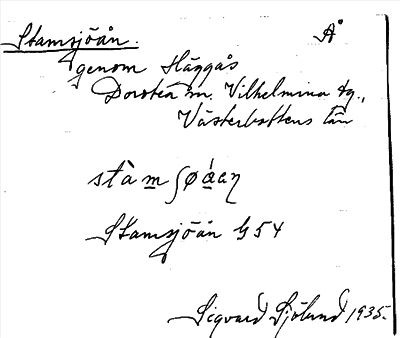 Stamsjöån. Å
genom Häggås
Dorotea m. Vilhelmina tg.,
Västerbottens län
stàm ʃøáaη
Stamsjöån G 54
Sigvard Sjölund 1935.